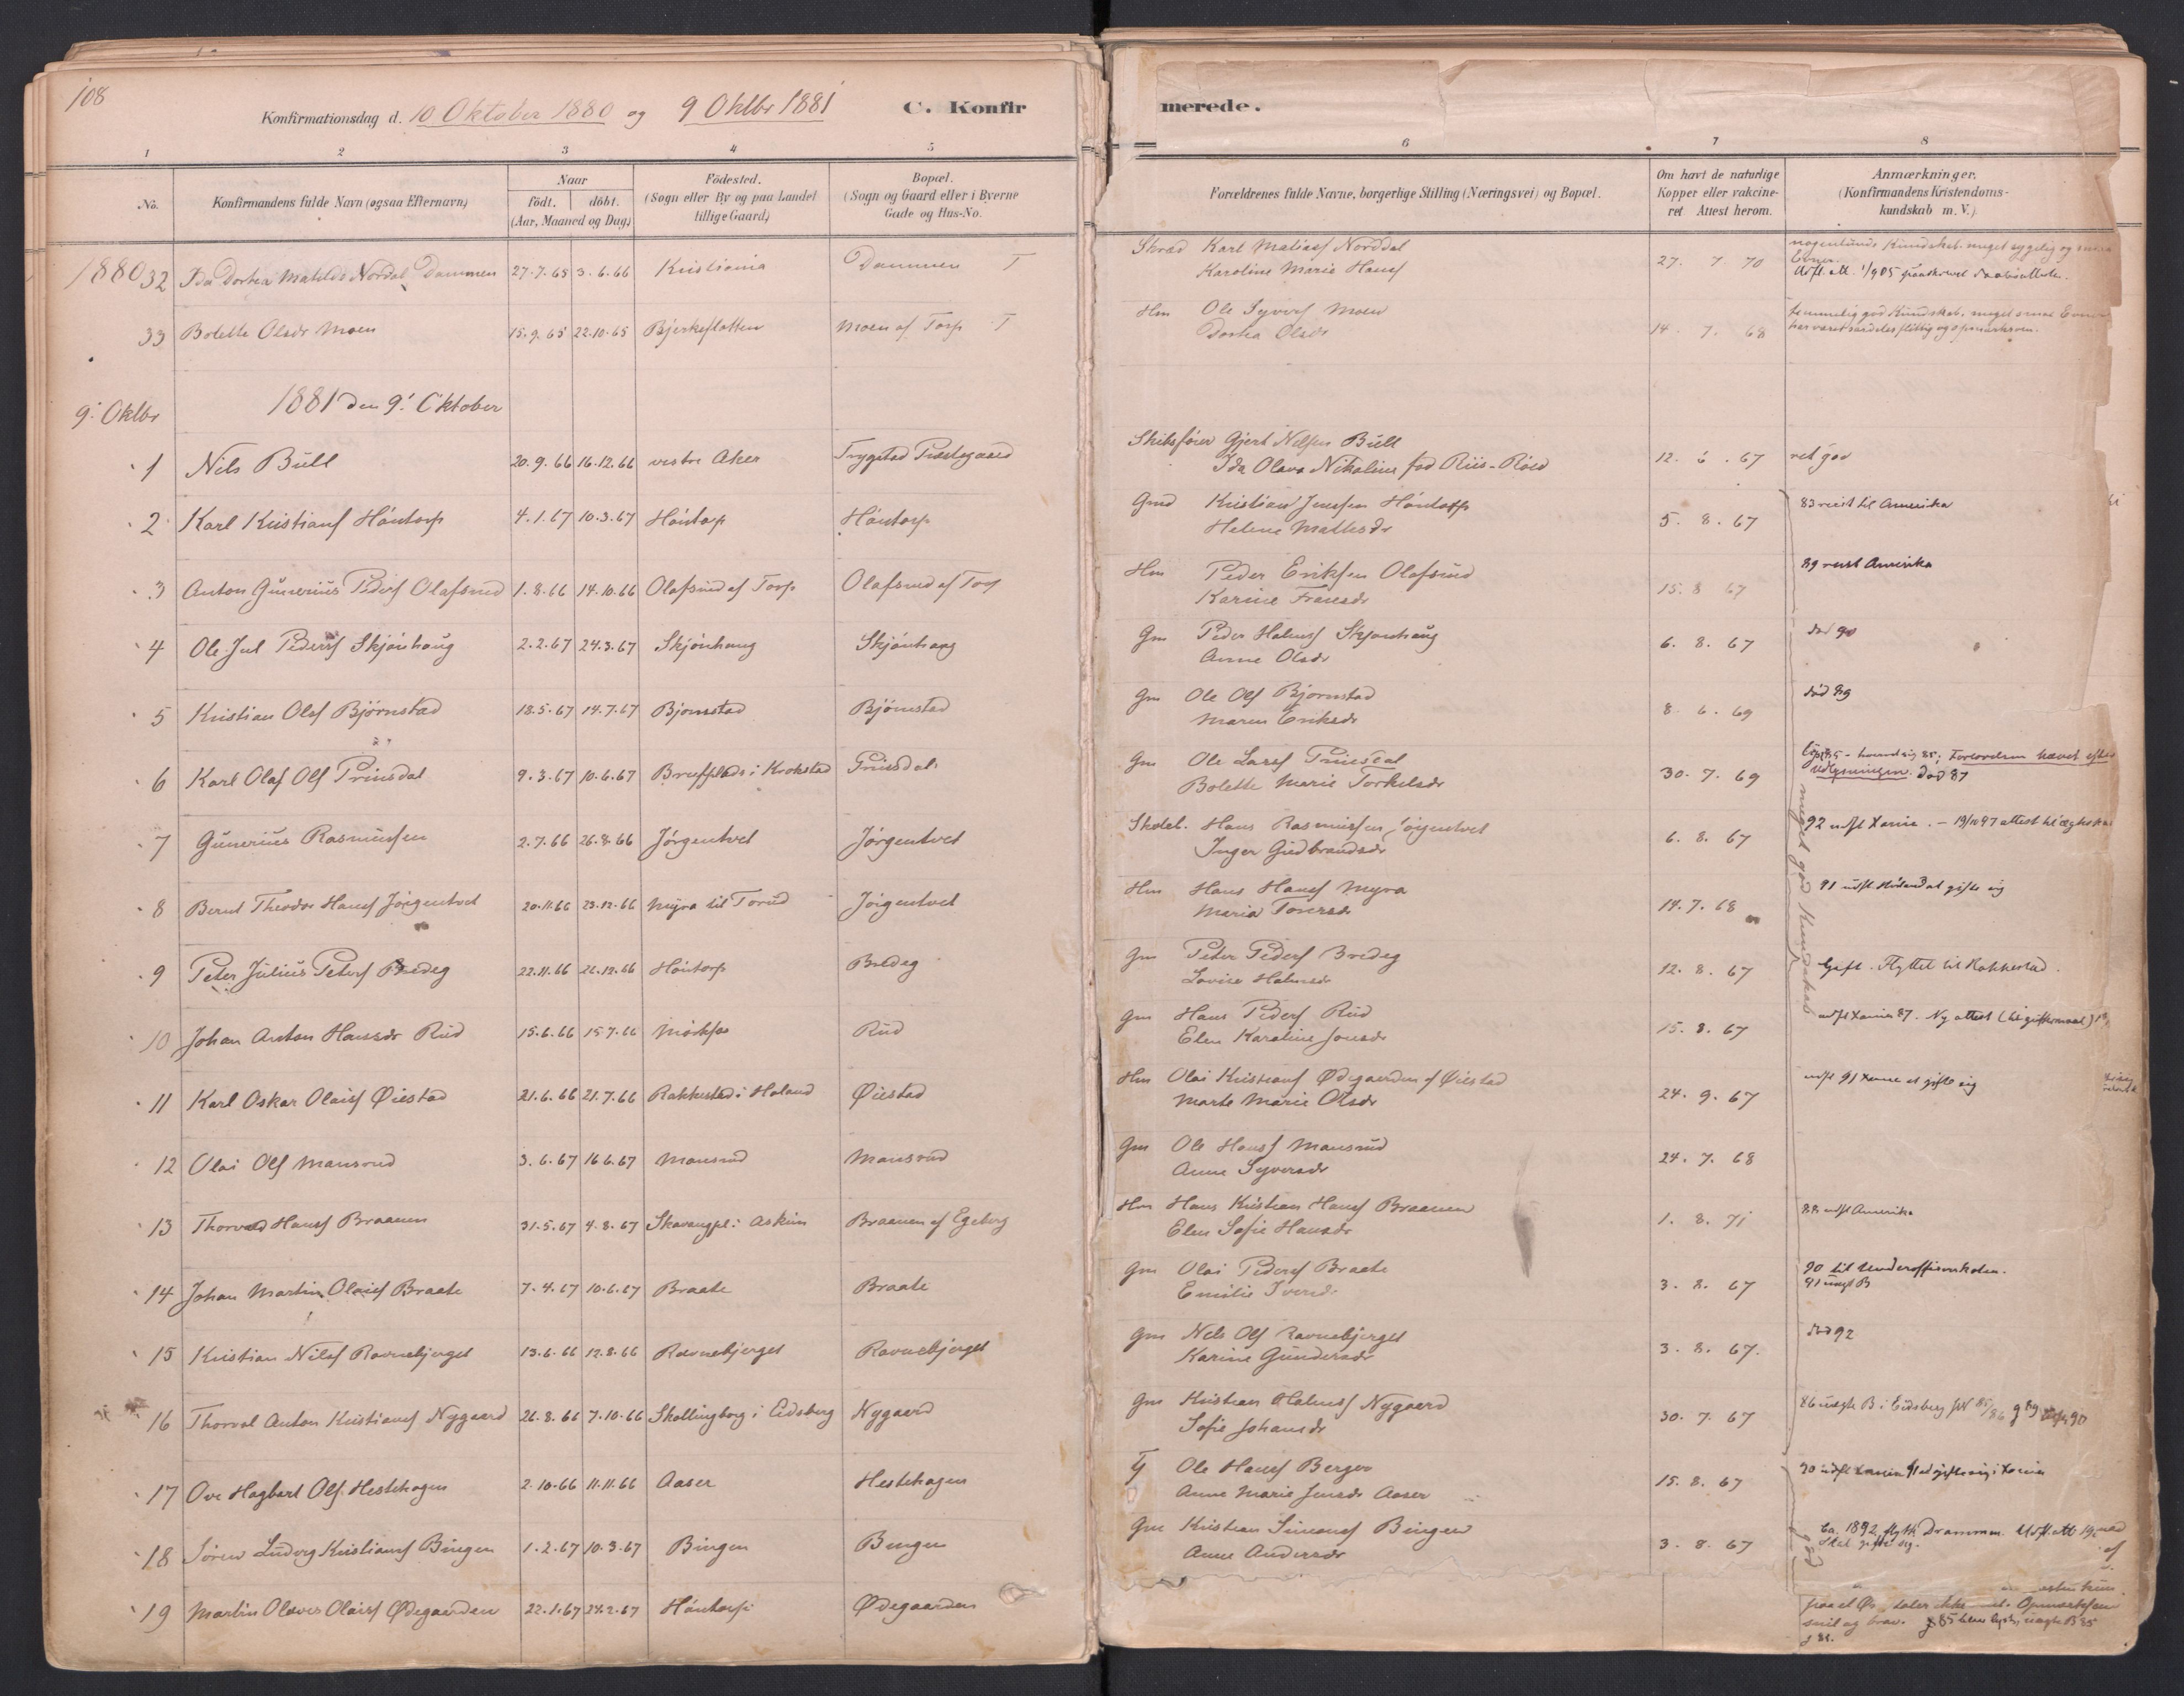 108
Konfirmationsdag d. 10 Oktober 1880 og 9 Oktbr 1881 C. Konfirmerede.
1 2 3 4 5 6 7 8
No. Konfirmandens fulde Navn (ogsaa Efternavn) Naar födt. döbt. (Aar, Maaned og Dag) Födested. (Sogn eller By og paa Landet tillige Gaard) Bopæl. (Sogn og Gaard eller i Byerne Gade og Hus-No. Forældrenes fulde Navne, borgerlige Stilling (Næringsvei) og Bopæl. Om havt de naturlige Kopper eller vakcineret Attest herom. Anmærkninger. (Konfirmandens Kristendomskundskab m. V.)
1880 32 Ida Dortea Matilde Nordal Dammen 27.7.65 3.6.66 Kristiania Dammen T Skræd Karl Matiass Norddal 27. 7 70
Karoline Marie Hansd
33 Bolette Olsdr Moen 15.9.65 22.10.65 Bjerkeslotten Moen af Torp T Hm Ole Syvers Moen 14. 7. 68 temmelig god Kundskab, meget smaa Evner
Dortea Olsdr har været særdeles flittig og opmærksom.
9. Oktbr 1881 den 9. Oktober
1 Nils Bull 20.9.66 16.12.66 vestre Aker Trygstad Præstegaard Skibsfører Gjert Nilsen Bull 12. 6. 67 ret god
Ida Olava Nikoline fød Riis-
2 Karl Kristians Höntorp 4.1.67 10.3.67 Höntorp Höntorp Gmd Kristian Jensen Höntorp 5. 8. 67 83 reist til Amerika
Helene Mattisdr
3 Anton Gunerius Peders Olafsrud 1.8.66 14.10.66 Olafsrud af Torp Olafsrud af Torp Hm Peder Eriksen Olafsrud 15. 8 67 89 reist Amerika
Karine Fransdr
4 Ole Jul Peders Skjönhaug 2.2.67 24.3.67 Skjönhaug Skjönhaug Gm Peder Halvors Skjönhaug 6. 8. 67 død 90
Anne Olsdr
5 Kristian Ols Björnstad 18.5.67 14.7.67 Bjørnstad Björnstad Gm Ole Ols Bjørnstad 8. 6. 69 død 89
Maren Eriksdr
6 Karl Olaf Ols Prinsdal 9.3.67 10.6.67 i Krokstad Prinsdal Gm Ole Lars Prinsdal 30. 7. 69
Bolette Marie Torkelsdr død 87
7 Gunerius Rasmussen 2.7.66 26.8.66 Jörgentvet Jörgentvet Skolel. Hans Rasmussen Jörgentvet 6. 8. 67 92 udfl Xania. – 19/10 97 attest til
Inger Gudbrandsdr
8 Bernt Theodor Hans Jörgentvet 20.11.66 23.12.66 Myra til Torud Jörgentvet Hm Hans Hans Myra 14. 7. 68
Maria Toversdr meget god Kundskab
9 Peter Julius Peters Bredeg 22.11.66 26.12.66 Höntorp Bredeg Gm Peter Peders Bredeg 12. 8. 67 Gift. Flyttet til Rakkestad.
Lovise Halvorsdr
10 Johan Anton Hanssdr Rud 15.6.66 15.7.66 Rud Gm Hans Peders Rud 15. 8. 67 udfl Xania 87. Ny attest (til giftermaal)
Elen Karoline Jonsdr
11 Karl Oskar Olais Øiestad 21.6.66 21.7.66 Rakkestad i Høland Øiestad Hm Olai Kristians Ødegaarden af Øiestad 24. 9. 67 udfl 91 at gifte sig
Marte Marie Olsdr
12 Olai Ols Mansrud 3.6.67 16.6.67 Mansrud Mansrud Gm Ole Hans Mansrud 24. 7. 68
Anne Syversdr
13 Thorvald Hans Braanen 31.5.67 4.8.67 i Askim Braanen af Egeberg Hm Hans Kristian Hans Braanen 1. 8. 71 88 udfl Amerika
Elen Sofie Hansdr
14 Johan Martin Olais Braate 7.4.67 10.6.67 Braate Braate Gm Olai Peders Braate 3. 8. 67 90 til Underofficerskolen.
Emilie 91 ugift B
15 Kristian Nils Ravnebjerget 13.6.66 12.8.66 Ravnebjerget Ravnebjerget Gm Nils Ols Ravnebjerget 3. 8. 67. død 92
Karine Gundersdr
16 Thorval Anton Kristians Nygaard 26.8.66 7.10.66 Skollingborg i Eidsberg Nygaard Gm Kristian Halvors Nygaard 30. 7. 67
Sofie Johansdr
17 Ove Hagbart Ols. Hestehagen 2.10.66 11.11.66 Aaser Hestehagen Tj Ole Hans Berger 15. 8. 67
Anne Marie Jensdr Aaser
18 Sören Ludvig Kristians Bingen 1.2.67 10.3.67 Bingen Bingen Gm Kristian Simons Bingen 3. 8. 67 god Ca. 1892 flytt. Drammen.
Anne Andersdr Skal gifte sig.
19 Martin Olaves Olais Ødegaarden 22.1.67 24.2.67 Höntorp Ødegaarden